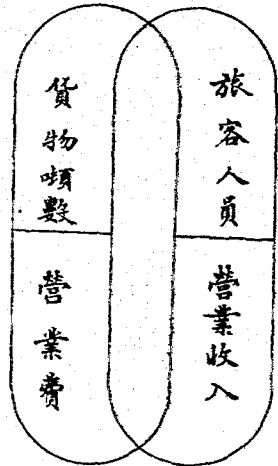 旅客人員
營業收入
貨物噸數
營業費